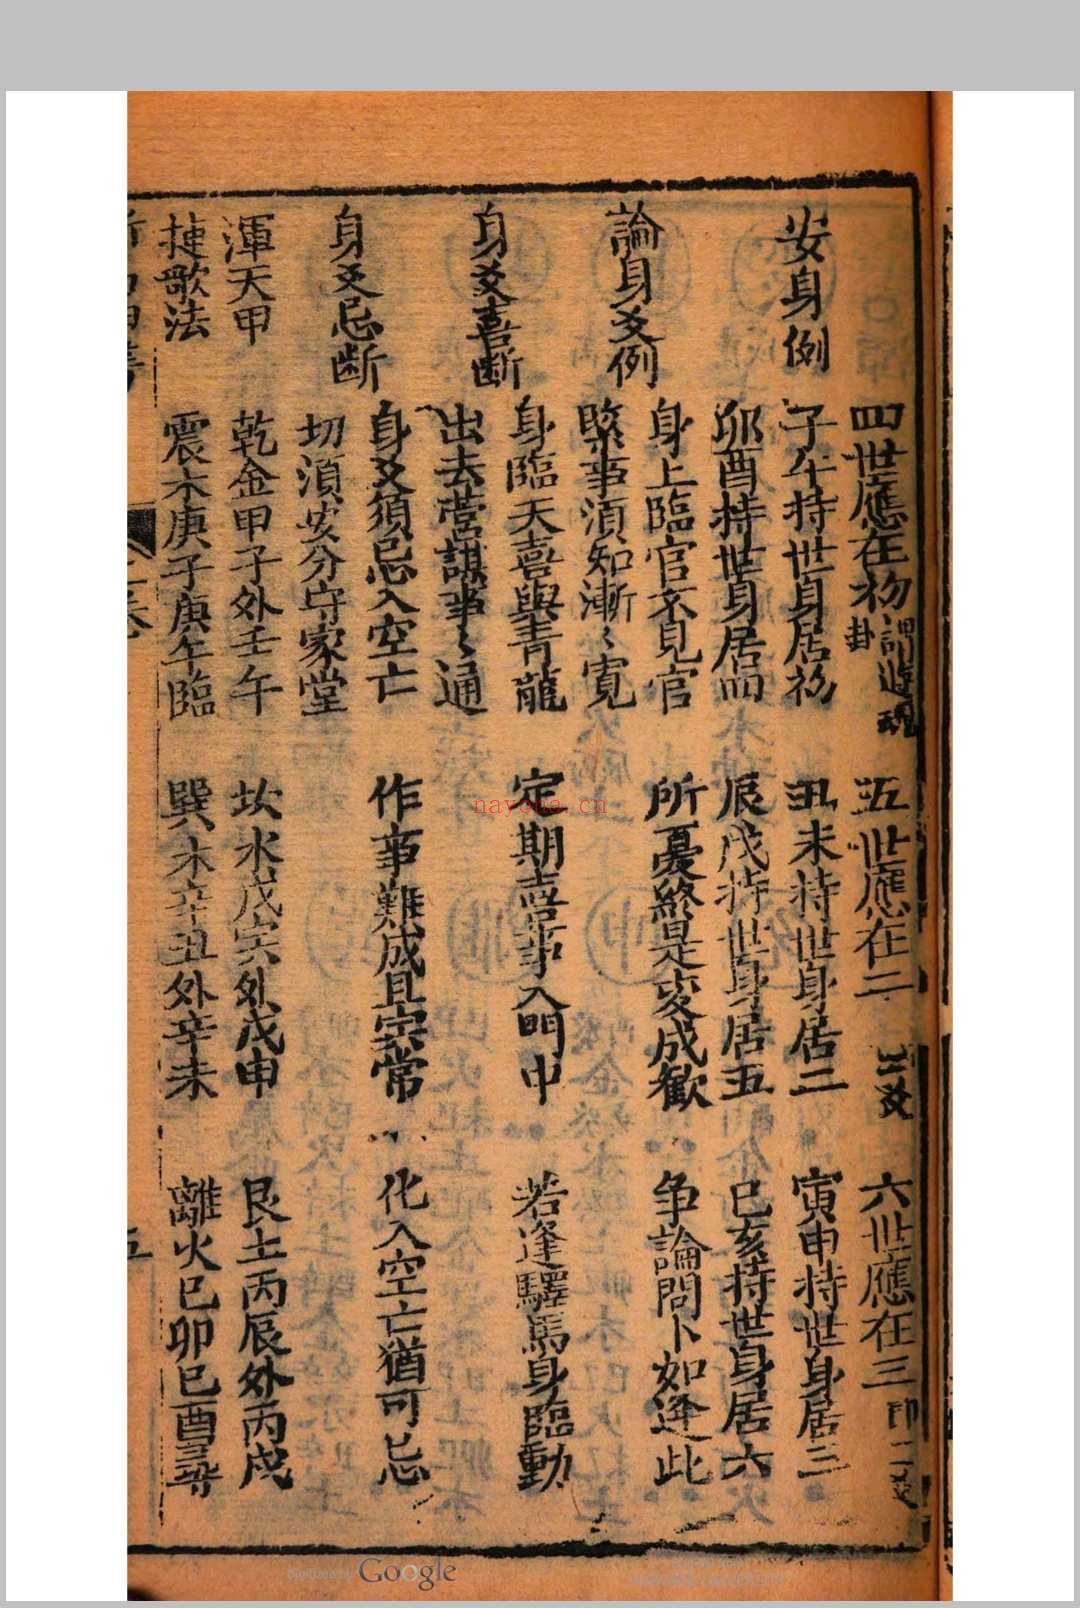 四世應在初 謂遊魂卦 五世應在二 三爻 六世應在三 即一爻
安身例 子午持世身居初 丑未持世身居二 寅申持世身居三
卯酉持世身居四 辰戌持世身居五 巳亥持世身居六
論身爻例 身上臨官不見官 所憂終是変成歡 争論問卜如逢此
緊事須知漸〻寛
身爻喜断 身臨天喜與青龍 定期喜事入門中 若逢驛馬身臨動
出去營謀事〻通
身爻忌断 身爻須忌入空亡 作事難成且守常 化入空亡猶可忌
切須安分守家堂
渾天甲 乾金甲子外壬午 坎水戊寅外戊申 艮土丙辰外丙戌
捷歌法 震木庚子庚午臨 巽木辛丑外辛未 離火巳卯巳酉尋
五
navona.cn
Digitized by Google